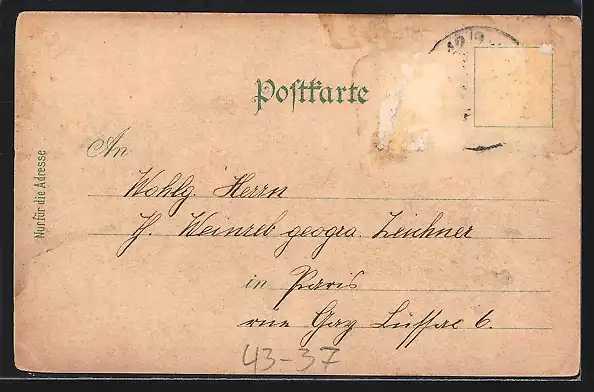 Postkarte
An
Wohlg. Herrn
H. Weinreb geogra. Zeichner
in Paris
rue Gay Lussac 6.
43-37
Nur für die Adresse